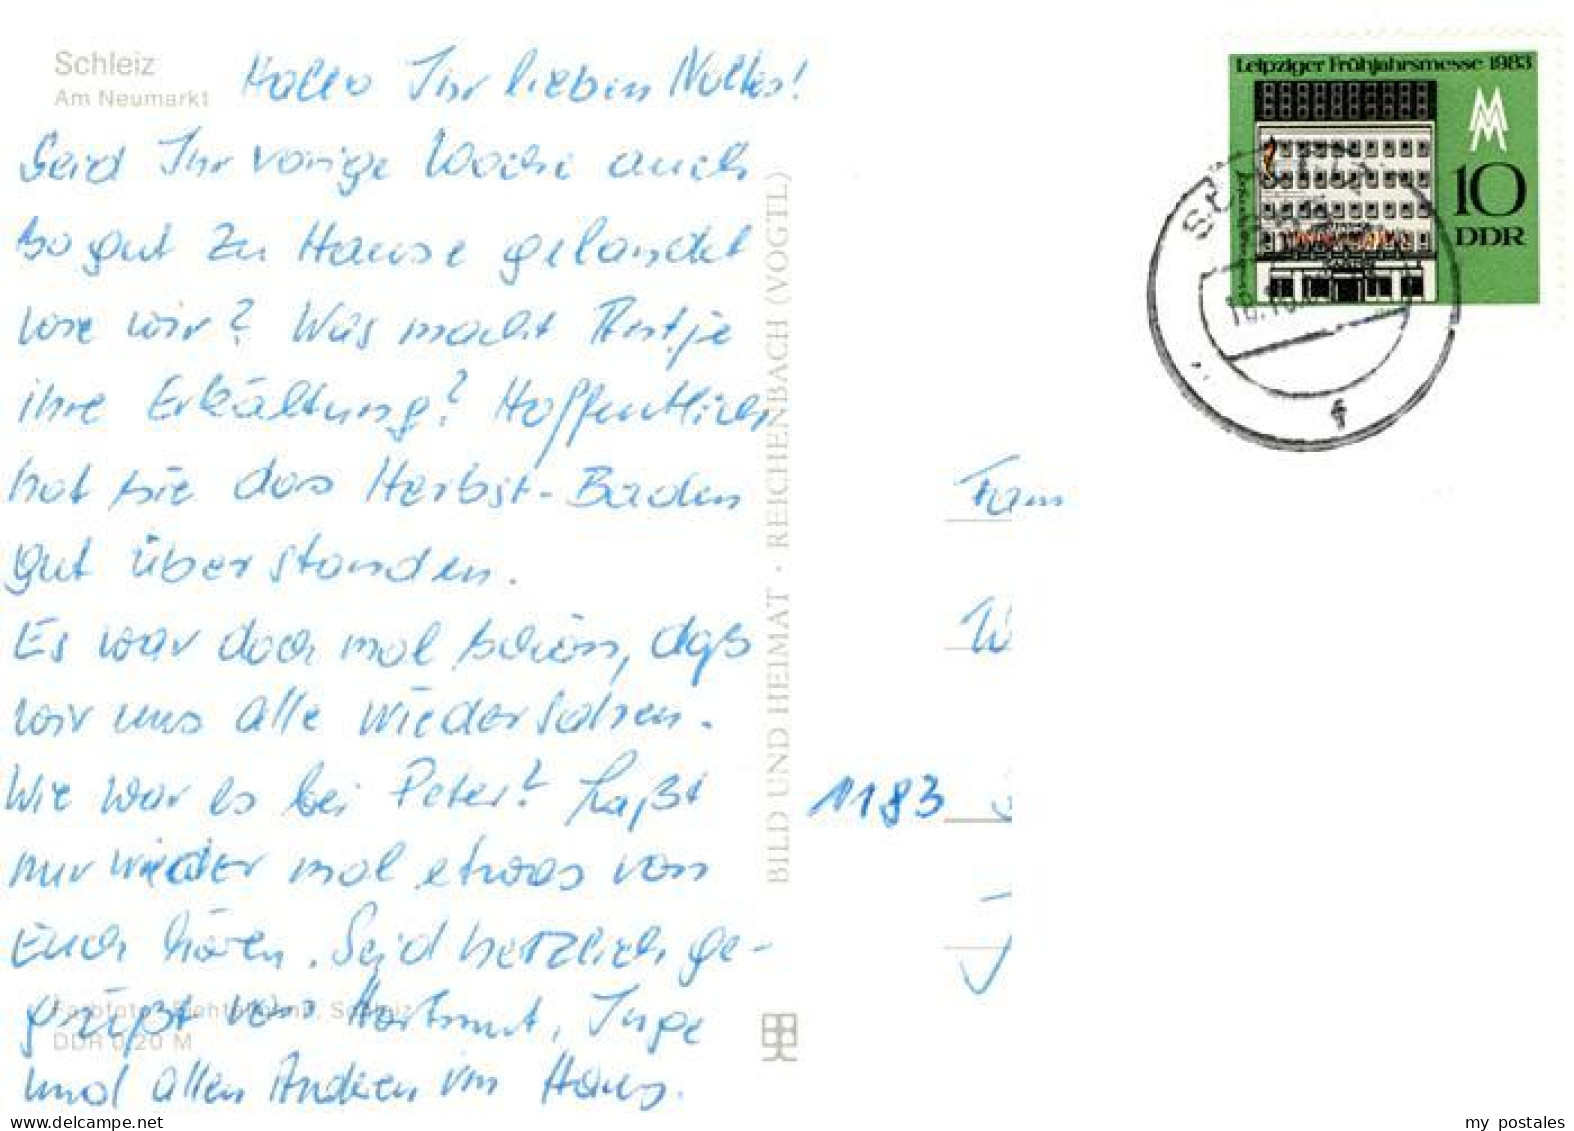 Schleiz
Am Neumarkt
Hallo Ihr lieben Noltes!
Seid Ihr vorige Woche auch
so gut zu Hause gelandet
wie wir? Was macht Antje
ihre Erkältung? Hoffentlich
hat sie das Herbst-Baden
gut überstanden.
Es war doch mal schön, daß
wir uns alle wiedersahen.
Wie war es bei Peter? Laßt
mir wieder mal etwas von
Euch hören. Seid herzlich ge-
grüßt von Hartmut, Inge
und allen Anderen im Haus.
Farbfoto: Schleiz
DDR 0,20 M
BILD UND HEIMAT · REICHENBACH (VOGTL)
Leipziger Frühjahrsmesse 1983
10
DDR
Fam
1183
my postales